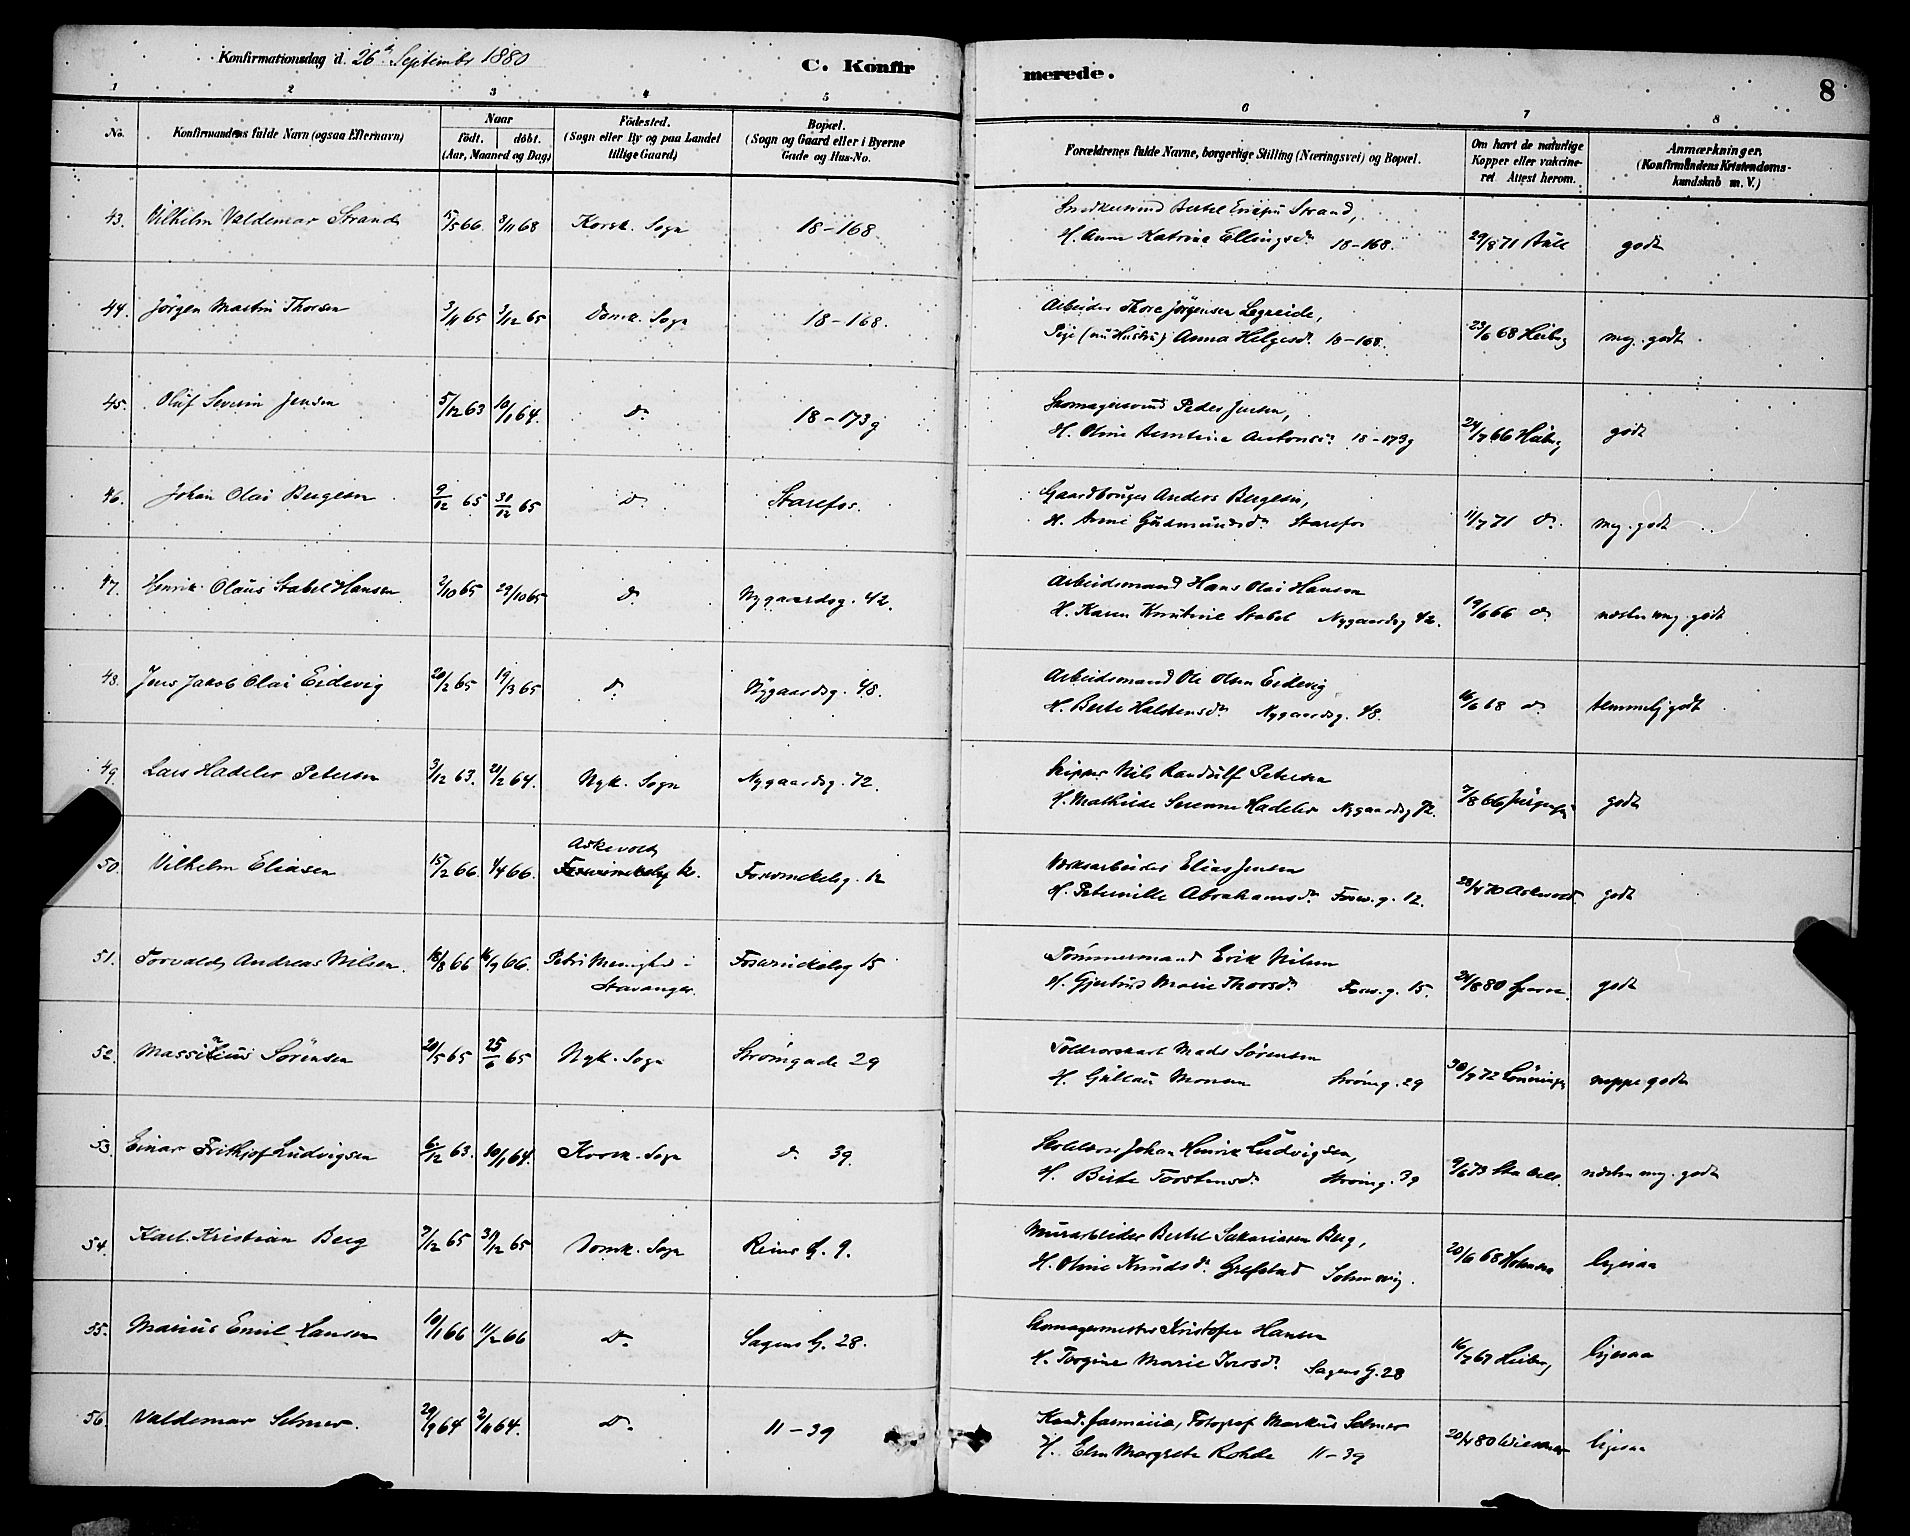 Konfirmationsdag d. 26de September 1880
C. Konfirmerede.
8
1 2 3 4 5 6 7 8
No.
Konfirmandens fulde Navn (ogsaa Efternavn)
Naar
födt. döbt.
(Aar, Maaned og Dag)
Födested.
(Sogn eller By og paa Landet
tillige Gaard)
Bopæl.
(Sogn og Gaard eller i Byerne
Gade og Hus-No.
Forældrenes fulde Navne, borgerlige Stilling (Næringsvei) og Bopæl.
Om havt de naturlige
Kopper eller vakcine-
ret Attest herom.
Anmærkninger.
(Konfirmandens Kristendoms-
kundskab m. V.)
43. Vilhelm Valdemar Strand 5/5 66 8/11 68 Korsk. Sogn 18-168 Snedkersvend Bertel Strand,
H. Anne Katrine Ellingsdr 18-168. 29/8 71 godt
44. Jörgen Martin Thorsen 3/11 65 3/12 65 Domk. Sogn 18-168. Arbeider Thore Jörgensen Legreide,
Pige (nu Hustru) Anna Helgesdr 18-168. 23/6 68 Heiberg meg. godt
45. Oluf Severin Jensen 5/12 63 10/1 64. Do 18-173g Skomagersvend Peder Jensen,
H. Oline Antonsdr 18-173g 24/7 66 Heiberg godt
46. Johan Olai Bergesen 9/12 65 30/12 65 Do Starefos. Gaardbruger Anders Bergesen,
H. Anne Gudmundsdr Starefos 11/7 71 Do. meg. godt
47. Henrik Olaus Stabel Hansen 2/10 65 29/10 65 Do Nygaardsg. 42. Arbeidsmand Hans Olai Hansen
H. Karen Stabel Nygaardsg 42. 19/6 66 Do næsten meg. godt
48. Jens Jakob Olai Eidevig 20/2 65 19/3 65 Do Nygaardsg. 48. Arbeidsmand Ole Olsen Eidevig
H. Berte Halstensdr Nygaardsg. 48. 16/6 68 Do temmelig godt
49. Lars Hadeler Petersen 3/12 63. 21/2 64. Nyk. Sogn Nygaardsg. 72. Skipper Nils Randulf Petersen
H. Mathilde Susanne Hadeler Nygaardsg 72. 7/8 66 godt
50. Vilhelm Eliasen 15/2 66. 1/4 66. Askevold Forsvinkelsg. 12 Elias Jensen
H. Peternille Abrahamsdr Forsv. g. 12. 28/4 70 Askevold. godt
51. Torvald Andreas Nilsen 18/8 66 16/9 66. Petri Menighed i
Stavanger. 15 Tömmermand Erik Nilsen
H. Gjertrud Marie Thorsdr Forsv. g. 15. 24/8 80 godt
52. Sörensen 20/5 65 25/6 65 Nyk. Sogn Strömgade 29 Mads Sörensen
H. Monsen Strömg. 29 30/7 72 neppe godt
53. Einar Frithjof Ludvigsen 6/12 63. 30/1 64. Korsk. Sogn Do 39. Johan Henrik Ludvigsen,
H. Berte Torstensdr Strömg. 39 9/6 73 næsten meg. godt
54. Karl Kristian Berg 3/12 65 31/12 65 Domk. Sogn Reins G. 9. Murarbeider Bertel Sakariasen Berg,
H. Oline Knudsdr Grefstad 20/6 68 ligesaa
55. Marius Emil Hansen 10/1 66 11/2 66 Do Sagens G. 28. Skomagermester Kristofer Hansen
H. Torgine Marie Sagens G. 28 16/7 67 Heiberg ligesaa
56. Valdemar Selmer. 29/9 64 2/11 64. Do 11-39 Kand. farmacia, Fotograf Markus Selmer
H. Elen Margrete Rohde 11-39 20/4 80 Wiesener ligesaa